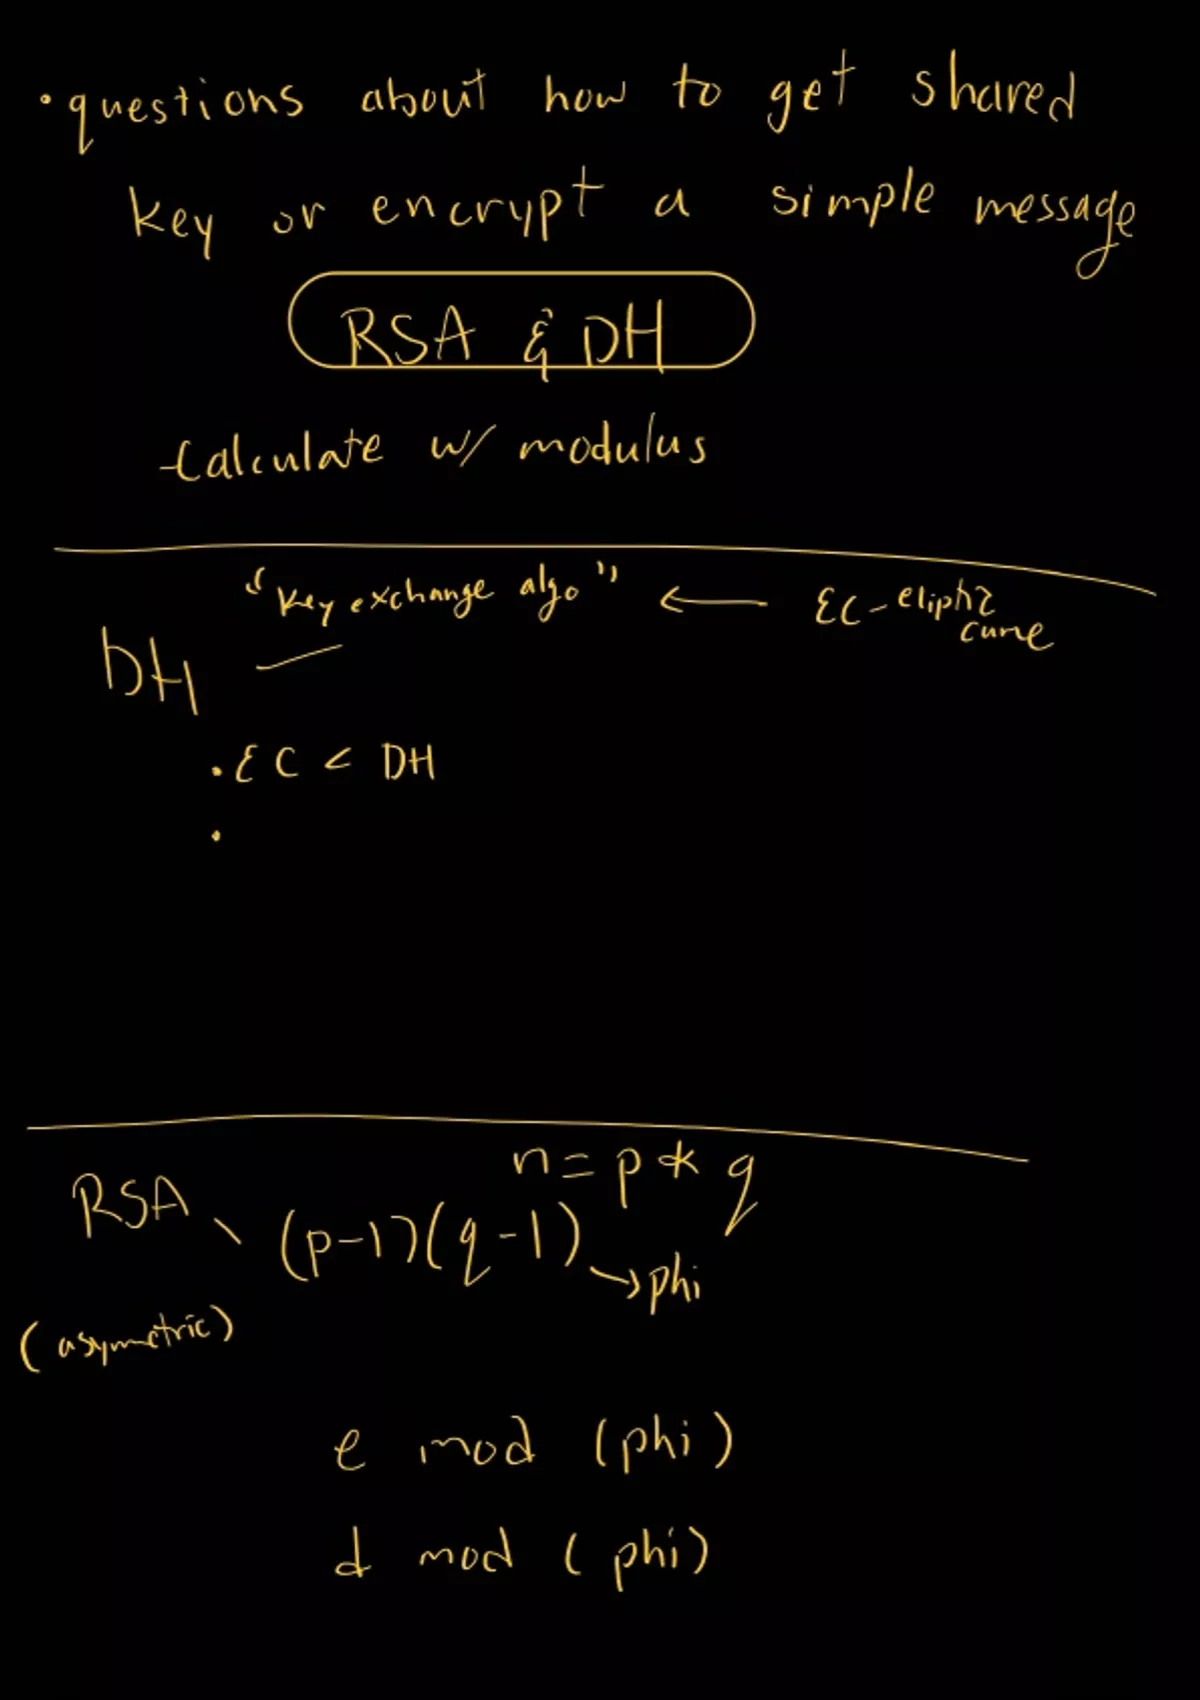 • questions about how to get shared
key or encrypt a simple message
RSA & DH
- Calculate w/ modulus
"key exchange algo" ← EC -
curve
DH —
• EC < DH
•
n = p * q
RSA \ (p-1)(q-1) → phi
(asymmetric)
e mod (phi)
d mod (phi)